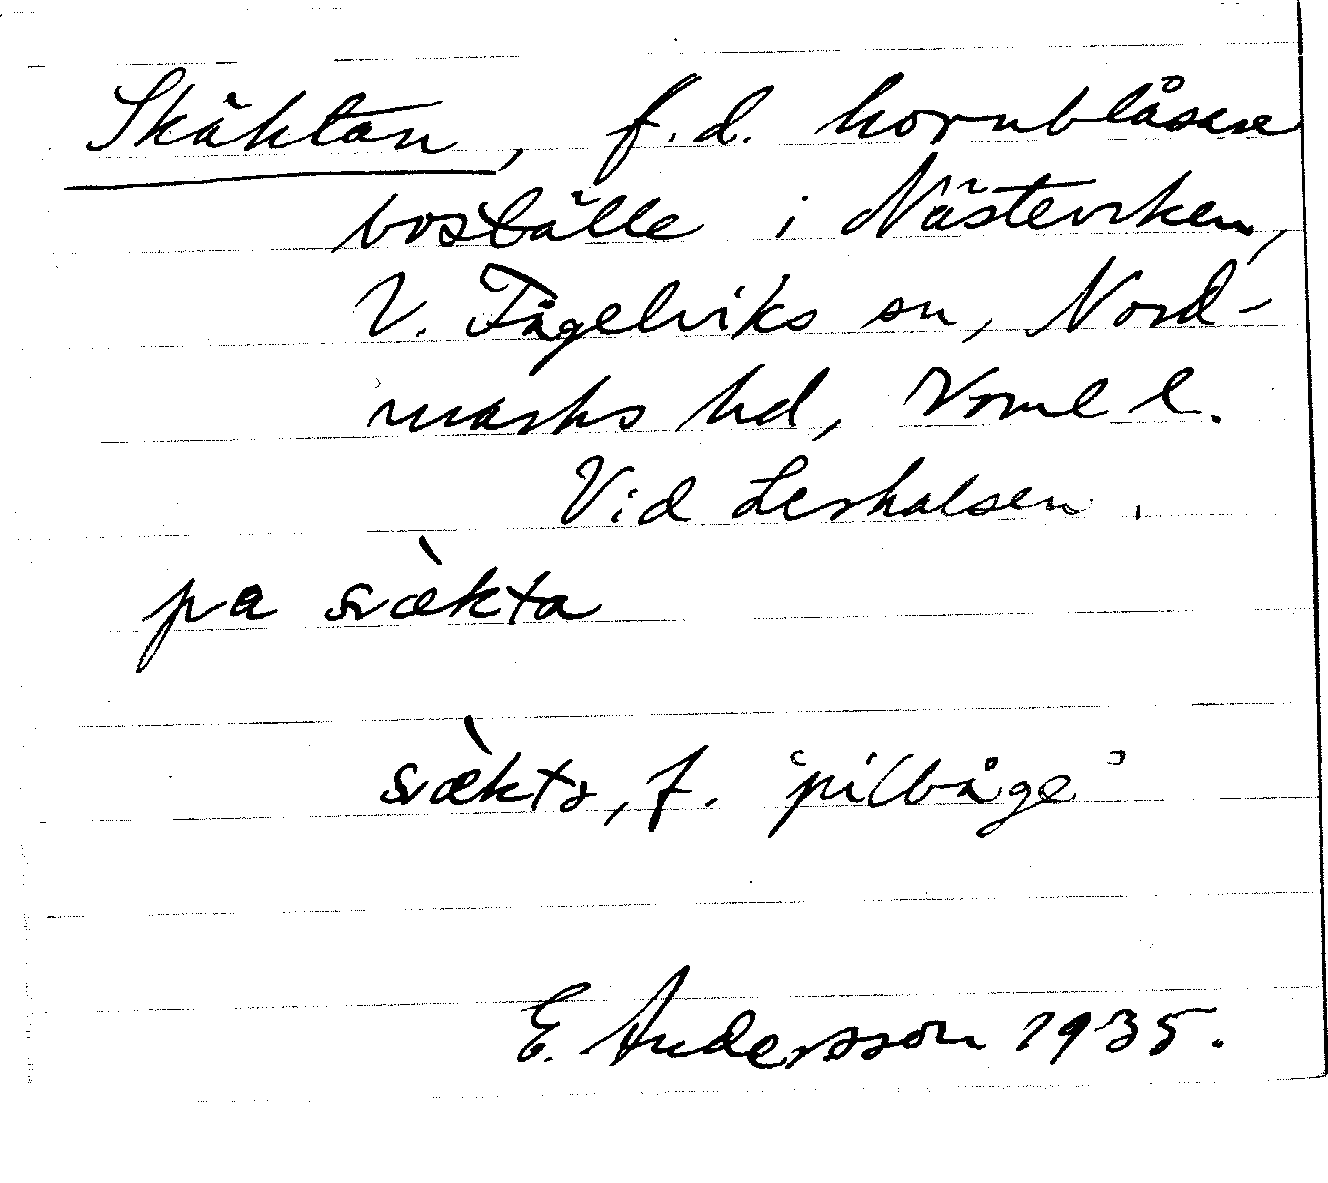 Skäktan, f.d. hornblåsare
boställe i Näsleviken,
V. Fågelviks sn, Nord-
marks hd, Vrml l.
Vid Lerhalsen.
pa sɩækta
sɩæktɜ, f. "pilbåge"
E. Andersson 1935.